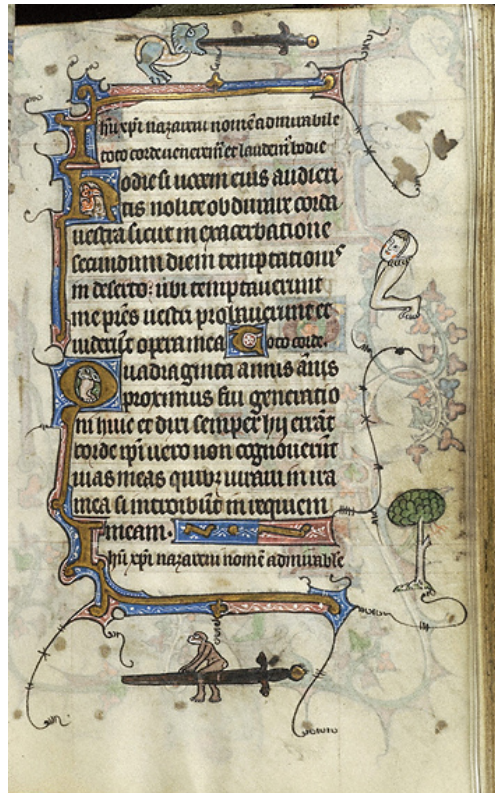 Ihu xpi nazareni nomē admirabile
toto corde venerem̄ et laudem̄ hodie
Hodie si vocem eius audieri
tis nolite obdurare corda
vestra sicut in exacerbatione
secundum diem temptationis
in deserto: ubi temptaverunt
me pr̄es vestri probaverunt et
viderūt opera mea Toto corde.
Quadraginta annis annis
proximus fui generatio
ni huic et dixi semper hii errāt
corde ipi vero non cognoverūt
vias meas quibꝫ iuravi in ira
mea si introibūt in requiem
meam.
Ihu xpi nazareni nomē admirabile